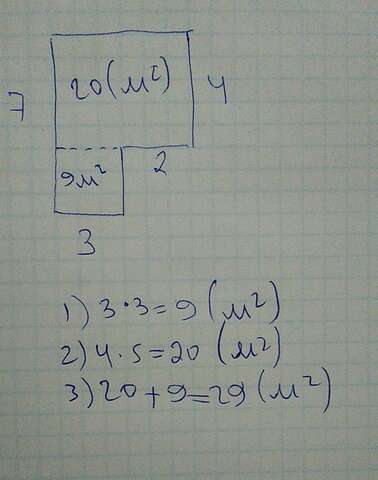 20 (м²)
7
4
9м²
2
3
1) 3·3=9 (м²)
2) 4·5=20 (м²)
3) 20+9=29 (м²)